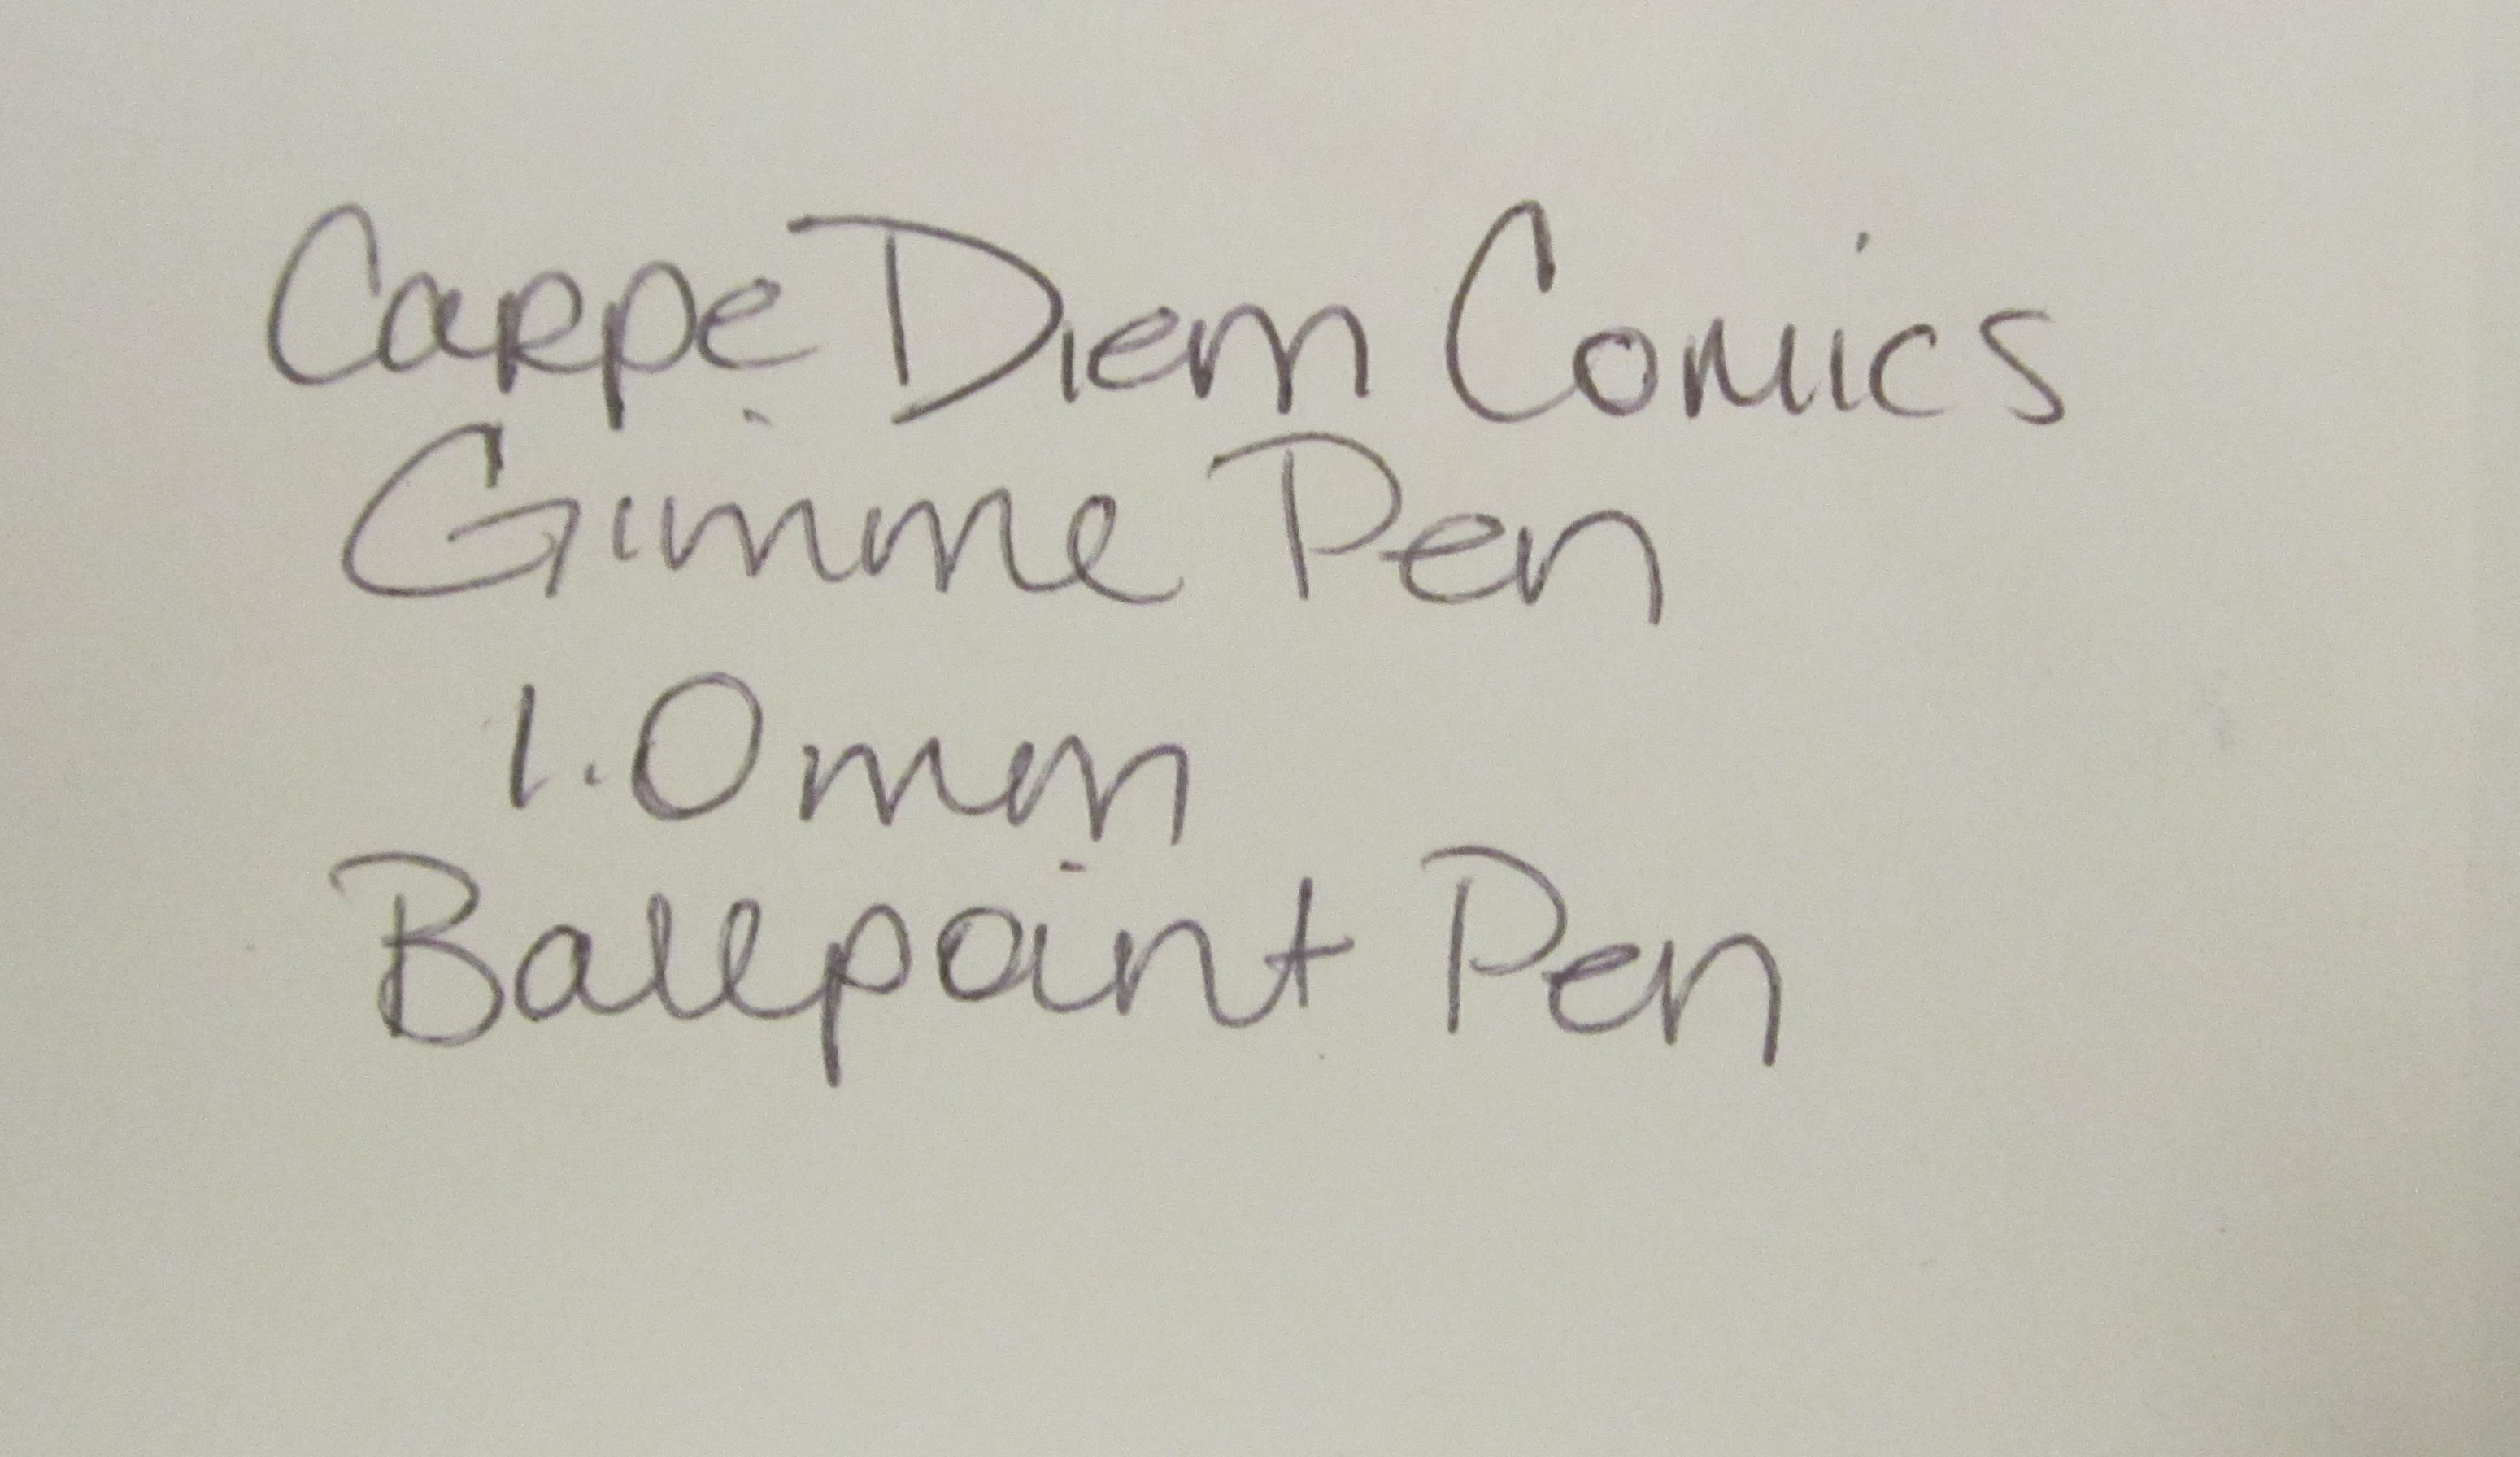 Carpe Diem Comics
Gimme Pen
1.0mm
Ballpoint Pen